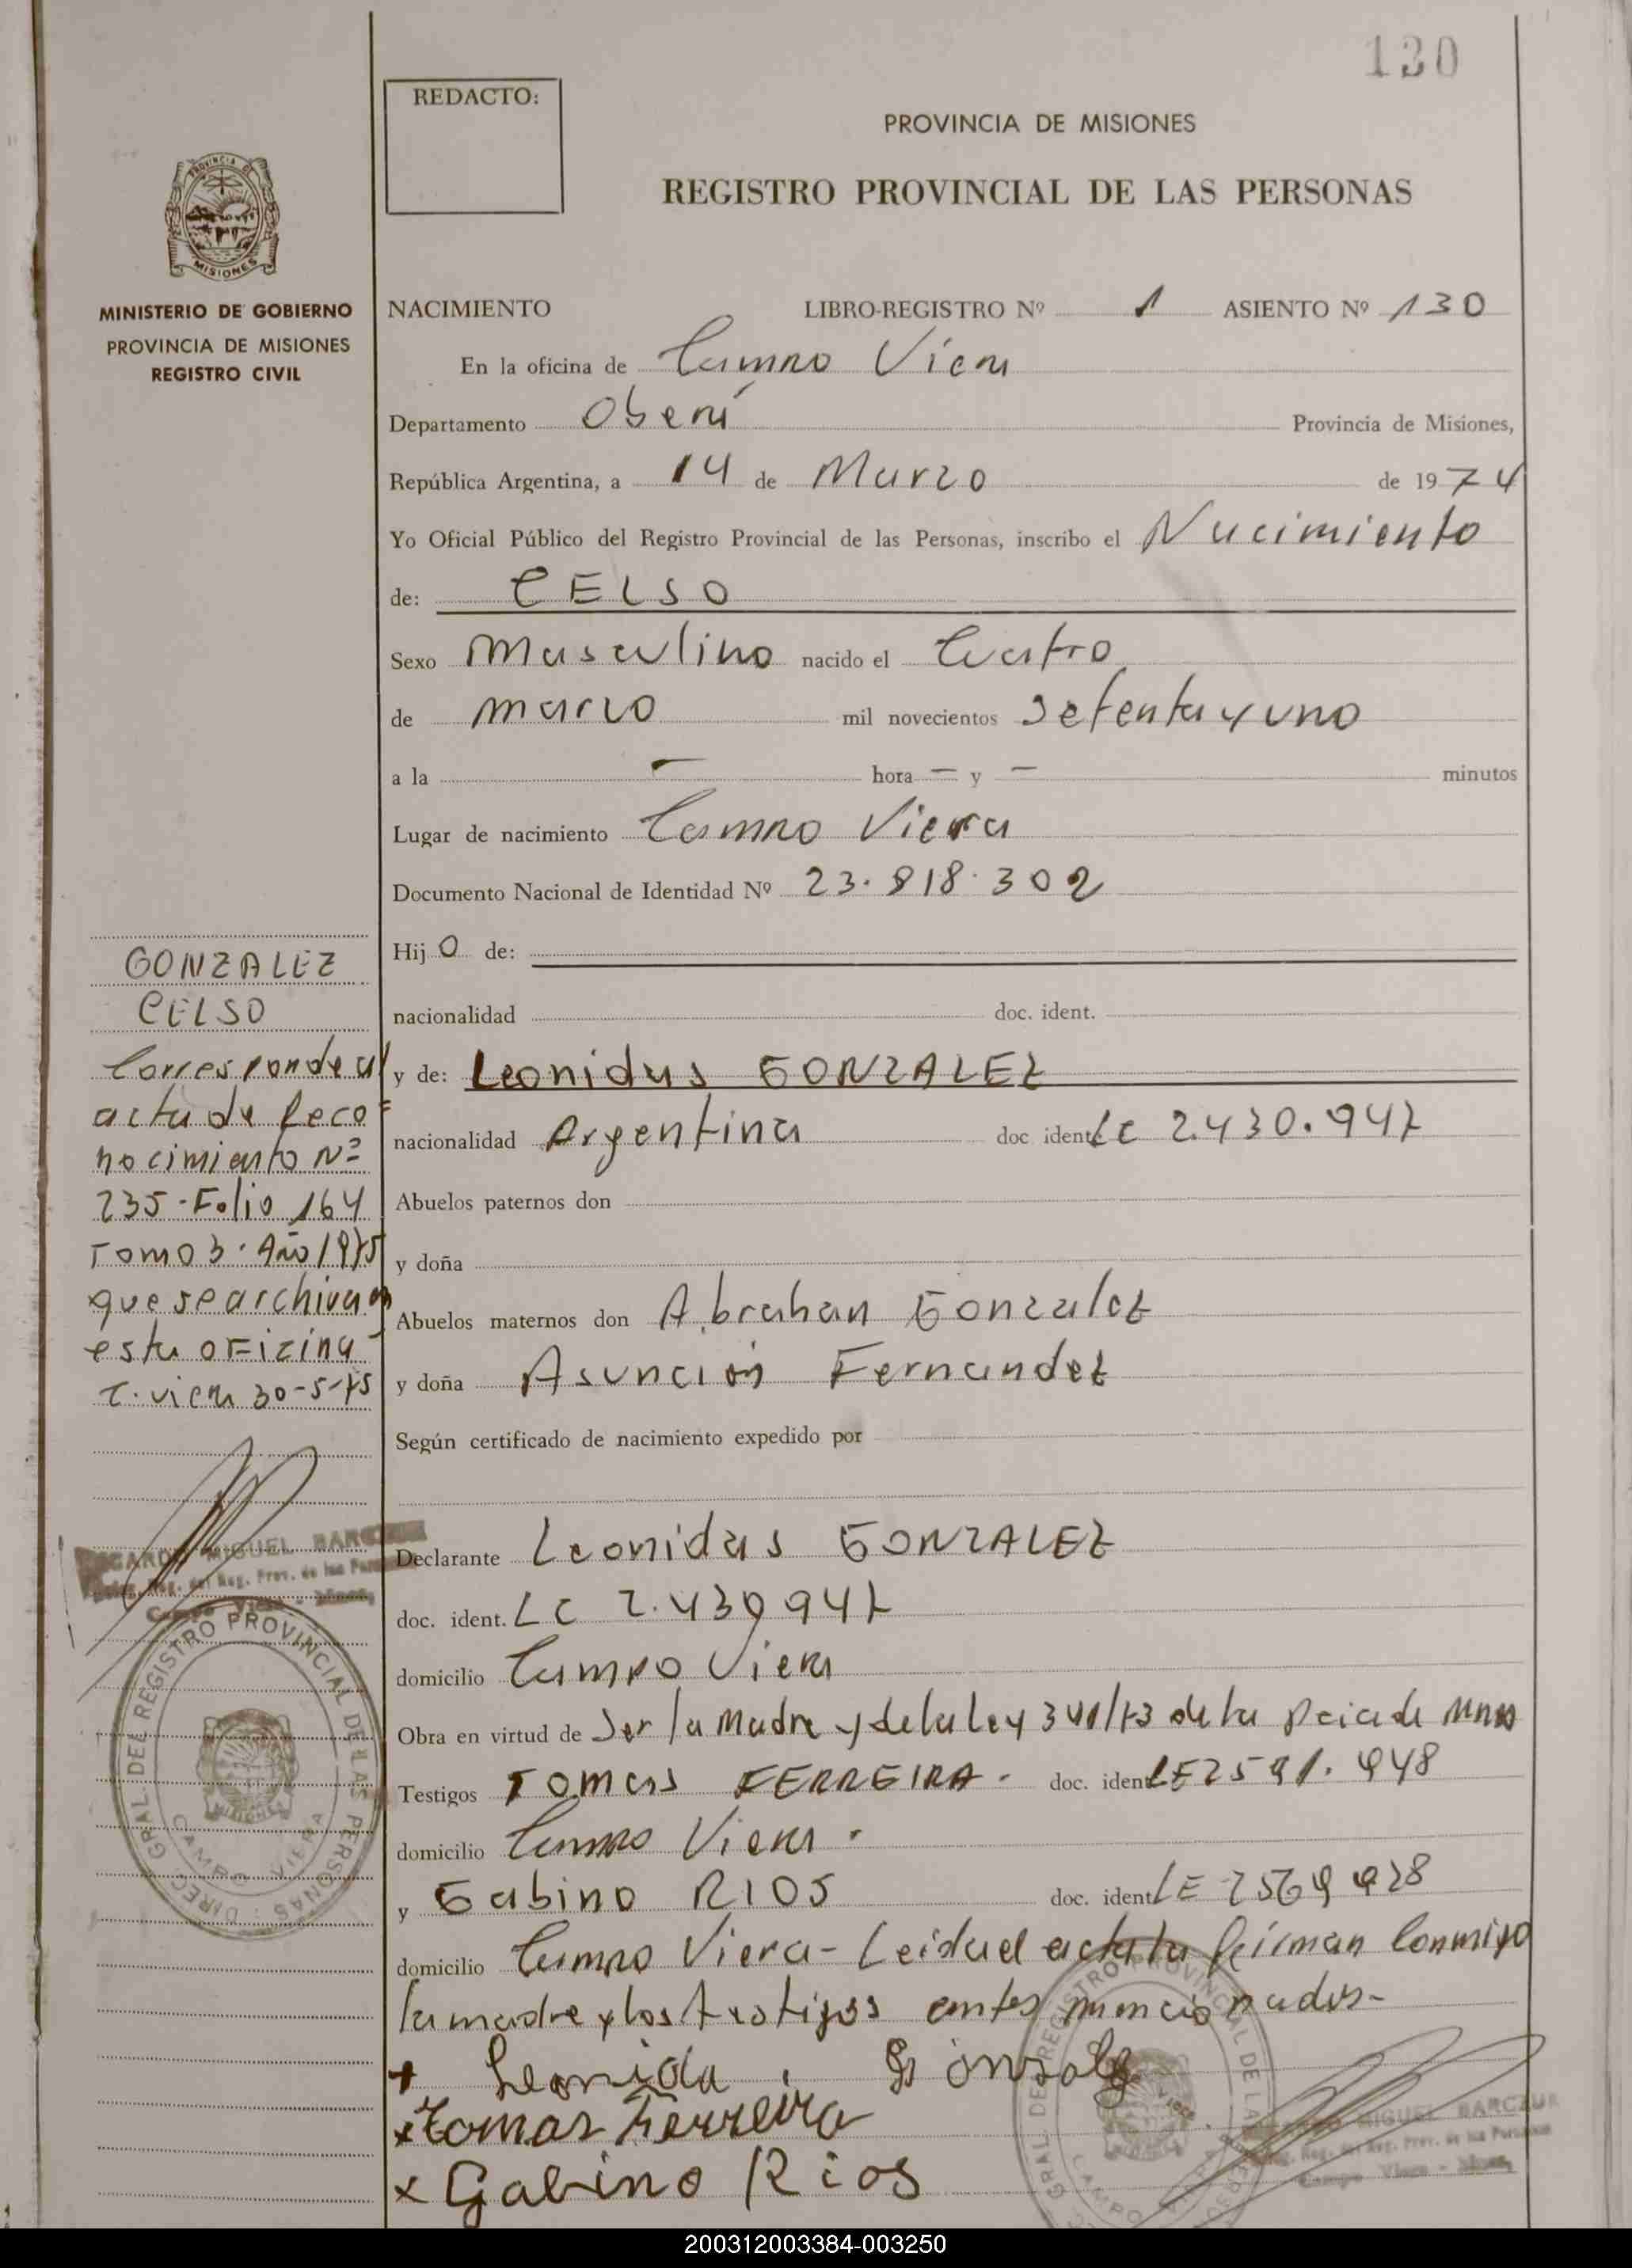 130
REDACTO:
PROVINCIA DE MISIONES
REGISTRO PROVINCIAL DE LAS PERSONAS
PROVINCIA DE
MISIONES
MINISTERIO DE GOBIERNO
PROVINCIA DE MISIONES
REGISTRO CIVIL
NACIMIENTO LIBRO-REGISTRO Nº 1 ASIENTO Nº 130
En la oficina de Campo Viera
Departamento Oberá Provincia de Misiones,
República Argentina, a 14 de Marzo de 1974
Yo Oficial Público del Registro Provincial de las Personas, inscribo el Nacimiento
de: CELSO
Sexo Masculino nacido el Cuatro
de marzo mil novecientos Setenta y uno
a la — hora — y — minutos
Lugar de nacimiento Campo Viera
Documento Nacional de Identidad Nº 23.818.302
Hijo de:
nacionalidad doc. ident.
y de: Leonidas GONZALEZ
nacionalidad Argentina doc ident LC 2.430.947
Abuelos paternos don
y doña
Abuelos maternos don Abrahan Gonzalez
y doña Asunción Fernandez
Según certificado de nacimiento expedido por
Declarante Leonidas GONZALEZ
doc. ident. LC 2.430947
domicilio Campo Viera
Obra en virtud de Ser la Madre y de la Ley /73 de la Pcia de Mnes
Testigos Tomas FERREIRA. doc. ident LE 2591.948
domicilio Campo Viera.
y Gabino RIOS doc. ident LE 2569928
domicilio Campo Viera - Leida el acta la firman Conmigo
la madre y los testigos antes mencionados-
+ Leonida Gonzalez
x Tomas Ferreira
x Gabino Rios
GONZALEZ
CELSO
Corresponde al
acta de Reco=
nocimiento Nº
235 - Folio 164
Tomo 3 - Año 1975
que se archiva en
esta oficina-
C. Viera 30-5-75
RICARDO MIGUEL BARCZUK
Reg. del Reg. Prov. de las Personas
Campo Viera - Mnes.
DIREC. GRAL. DEL REGISTRO PROVINCIAL DE LAS PERSONAS
CAMPO VIERA
GRAL. DEL REGISTRO PROVINCIAL DE LAS PERSONAS
CAMPO VIERA
MIGUEL BARCZUK
Reg. del Reg. Prov. de las Personas
Campo Viera - Mnes.
200312003384-003250